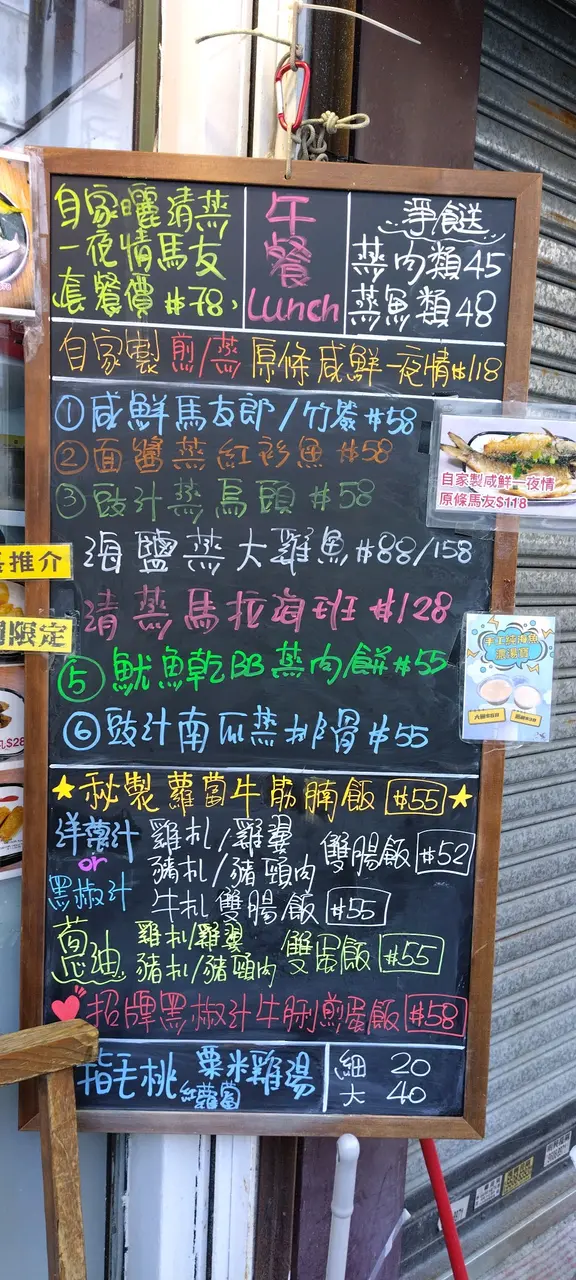 自家曬清蒸
一夜情馬友
套餐價 $78,
午
餐
Lunch
淨餸
蒸肉類45
蒸魚類48
自家製煎/蒸原條咸鮮一夜情$118
①咸鮮馬友郎/竹签 $58
②面醬蒸紅衫魚 $58
③豉汁蒸烏頭 $58
海鹽蒸大雞魚 $88/158
清蒸馬拉海班 $128
⑤魷魚乾BB蒸肉餅 $55
⑥豉汁南瓜蒸排骨 $55
★秘製蘿蔔牛筋腩飯 $55★
洋蔥汁
or
黑椒汁
雞扒/雞翼
豬扒/豬頸肉
雙腸飯 $52
牛扒雙腸飯 $55
蔥油
雞扒/雞翼
豬扒/豬頸肉
雙蛋飯 $55
招牌黑椒汁牛脷煎蛋飯 $58
指毛桃
粟米雞湯
紅蘿蔔
細 20
大 40
自家製咸鮮一夜情
原條馬友$118
推介
限定
手工純海魚
濃湯寶